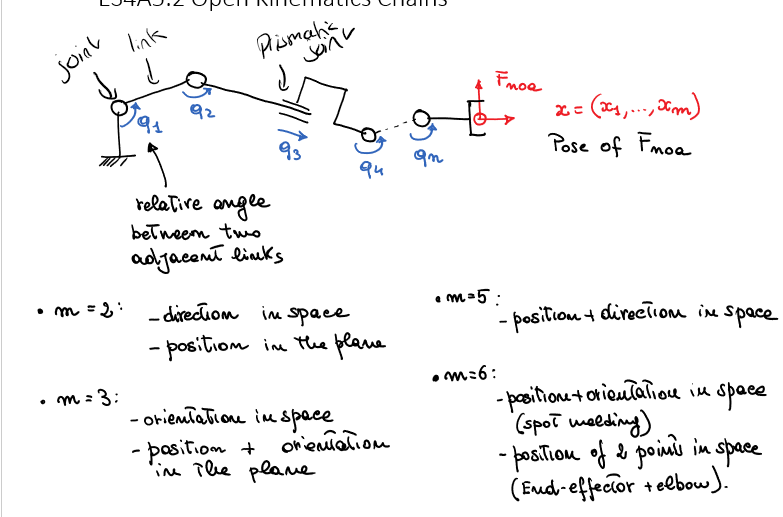 L34A3.2 Open Kinematics Chains
joint
link
Prismatic
joint
q1
q2
q3
q4
qn
x = (x1, ..., xm)
Pose of
relative angle
between two
adjacent links
• m = 2:
- direction in space
- position in the plane
• m = 3:
- orientation in space
- position + orientation
in the plane
• m=5:
- position + direction in space
• m=6:
- position + orientation in space
(spot welding)
- position of 2 points in space
(End-effector + elbow).